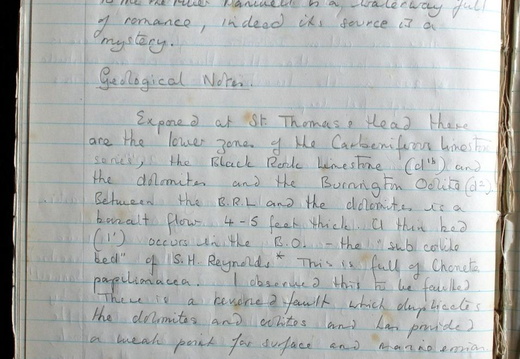 to me the River Banwell is a waterway full
of romance, indeed its source is a
mystery.
Geological Notes.
Exposed at St Thomas's Head there
are the lower zones of the Carboniferous limestone
series, the Black Rock Limestone (d1b) and
the dolomites and the Burrington Oolite
Between the B.R.L and the dolomites is a
basalt flow 4-5 feet thick. A thin bed
(1') occurs in the B.O. - the "sub oolite
bed" of S.H. Reynolds* This is full of Chonetes
papilionacea. I observed this to be faulted
There is a reversed fault which duplicates
the dolomites and oolites and has provided
a weak point for surface and marine erosion